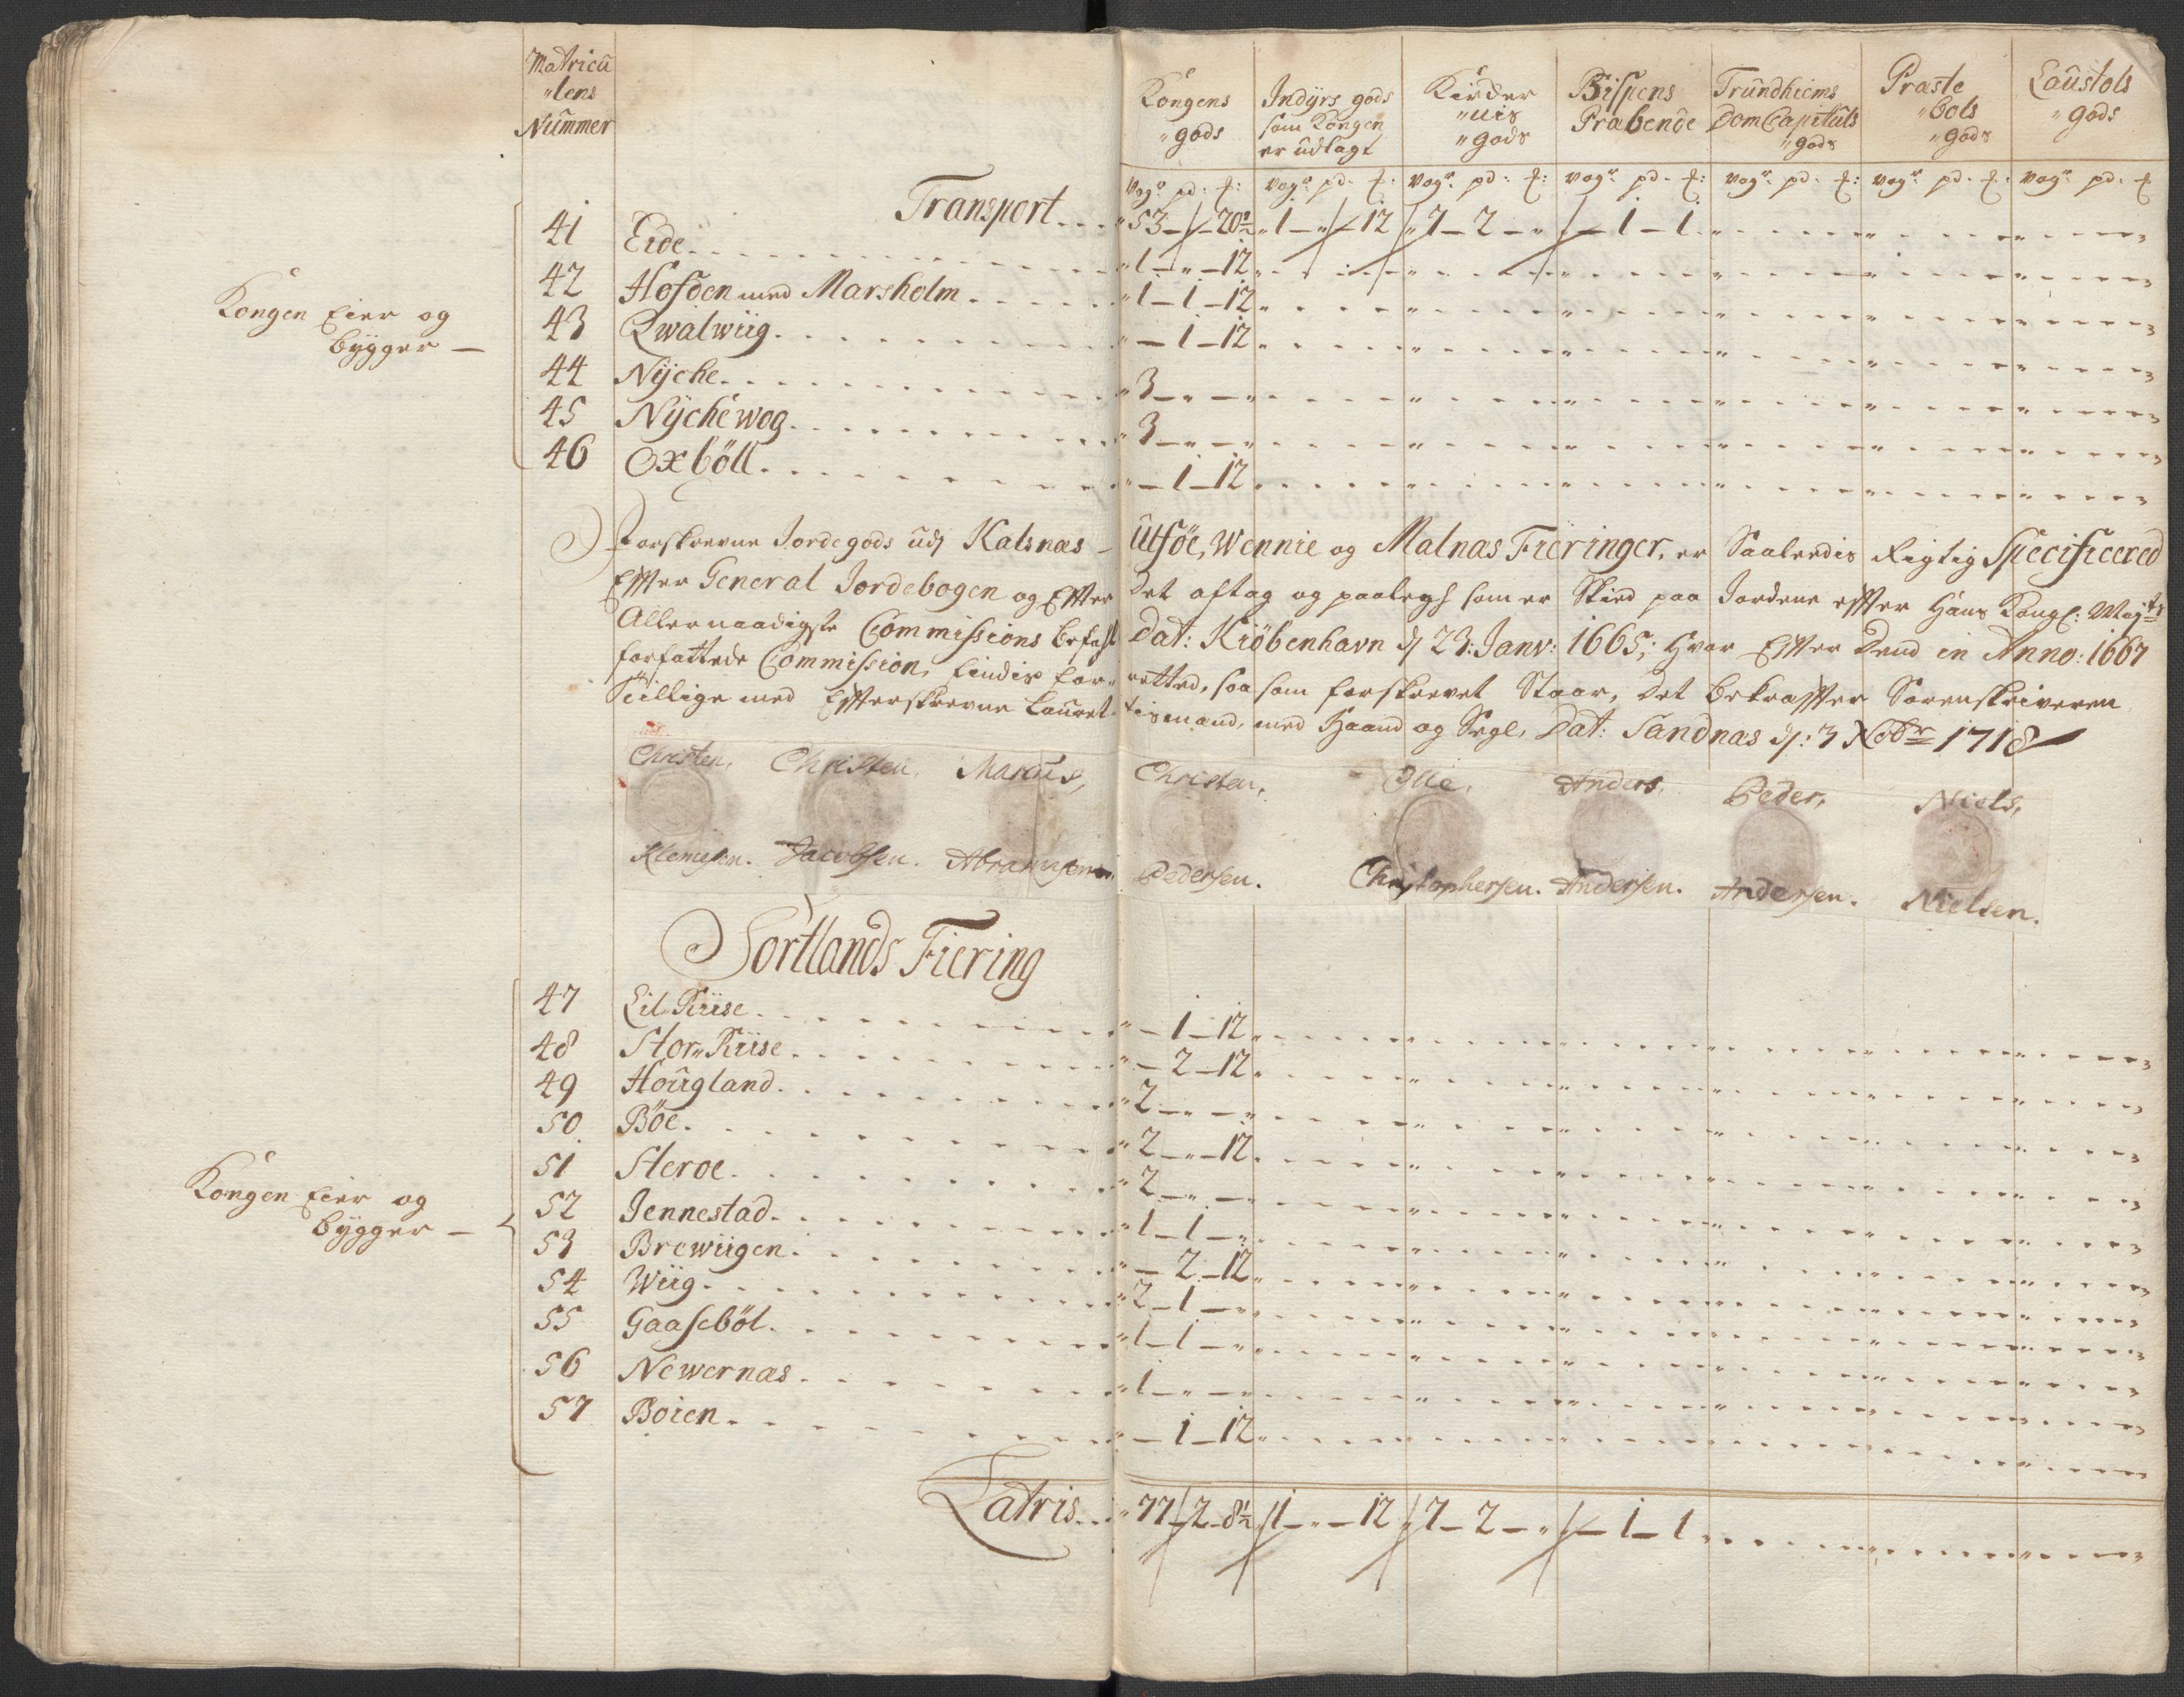 Matricu
"lens
Nummer
Kongens
"gods
Indÿrs gods
som Kongen
er udlagt
Kircker
"nis
"gods
Bispens
Præbende
Trundhiems
Dom Capituls
"gods
Præste
"bols
"gods
Laustols
"gods
Vog: pd: f: Vog: pd: f: Vog: pd: f: Vog: pd: f: Vog: pd: f: Vog: pd: f: Vog: pd: f:
Transport "53 – / – 20½ " 1 – " – 12 " 7 – 2 – " – 1 – 1
Kongen Eier og
bÿgger –
41 Eide "1 – " – 12
42 Hofden med Marsholm "1 – 1 – 12
43 Qwalwiig " – 1 – 12
44 Nÿche "3 – " – "
45 Nÿchewog "3 – " – "
46 Oxböll " – 1 – 12
Forskrevne Jordegods udj Kalsnæs – Utföe, Wennie og Malnas Fieringer, er Saaledis Rigtig Specificered
Efter General Jordebogen og Efter Det aftag og paalegh som er Skied paa Jordene efter Hans Kongl: Mayts
Allernaadigste Commissions befahl Dat: Kiöbenhavn d 23: Janv: 1665; Hvor Efter Dend in Anno: 1667
forfattede Commission, findis for- rettet, saa som forskrevet Staar, Det bekræfter Sorenskriveren
tillige med Efterskrevne Lauret- tismænd, med Haand og Segl, Dat: Sandnas d: 3 Nobr 1718
Christen, Christen, Marcus, Christen, Olle, Anders, Peder, Niels,
Klemesen. Jacobsen. Abrahamsen. Pedersen. Christophersen. Andersen. Andersen. Nielsen.
Sortlands Fiering
Kongen Eier og
bÿgger –
47 Lil Riise " – 1 – 12
48 Stor Riise " – 2 – 12
49 Hougland "2 – " – "
50 Böe "2 – " – 12
51 Steroe "2 – " – "
52 Jennestad "1 – 1 – "
53 Brewiigen " – 2 – 12
54 Wiig "2 – 1 – "
55 Gaaseböl "1 – 1 – "
56 Newernæs "1 – " – "
57 Boien " – 1 – 12
Latris "77 – 2 – 8½ " 1 – " – 12 " 7 – 2 – " – 1 – 1